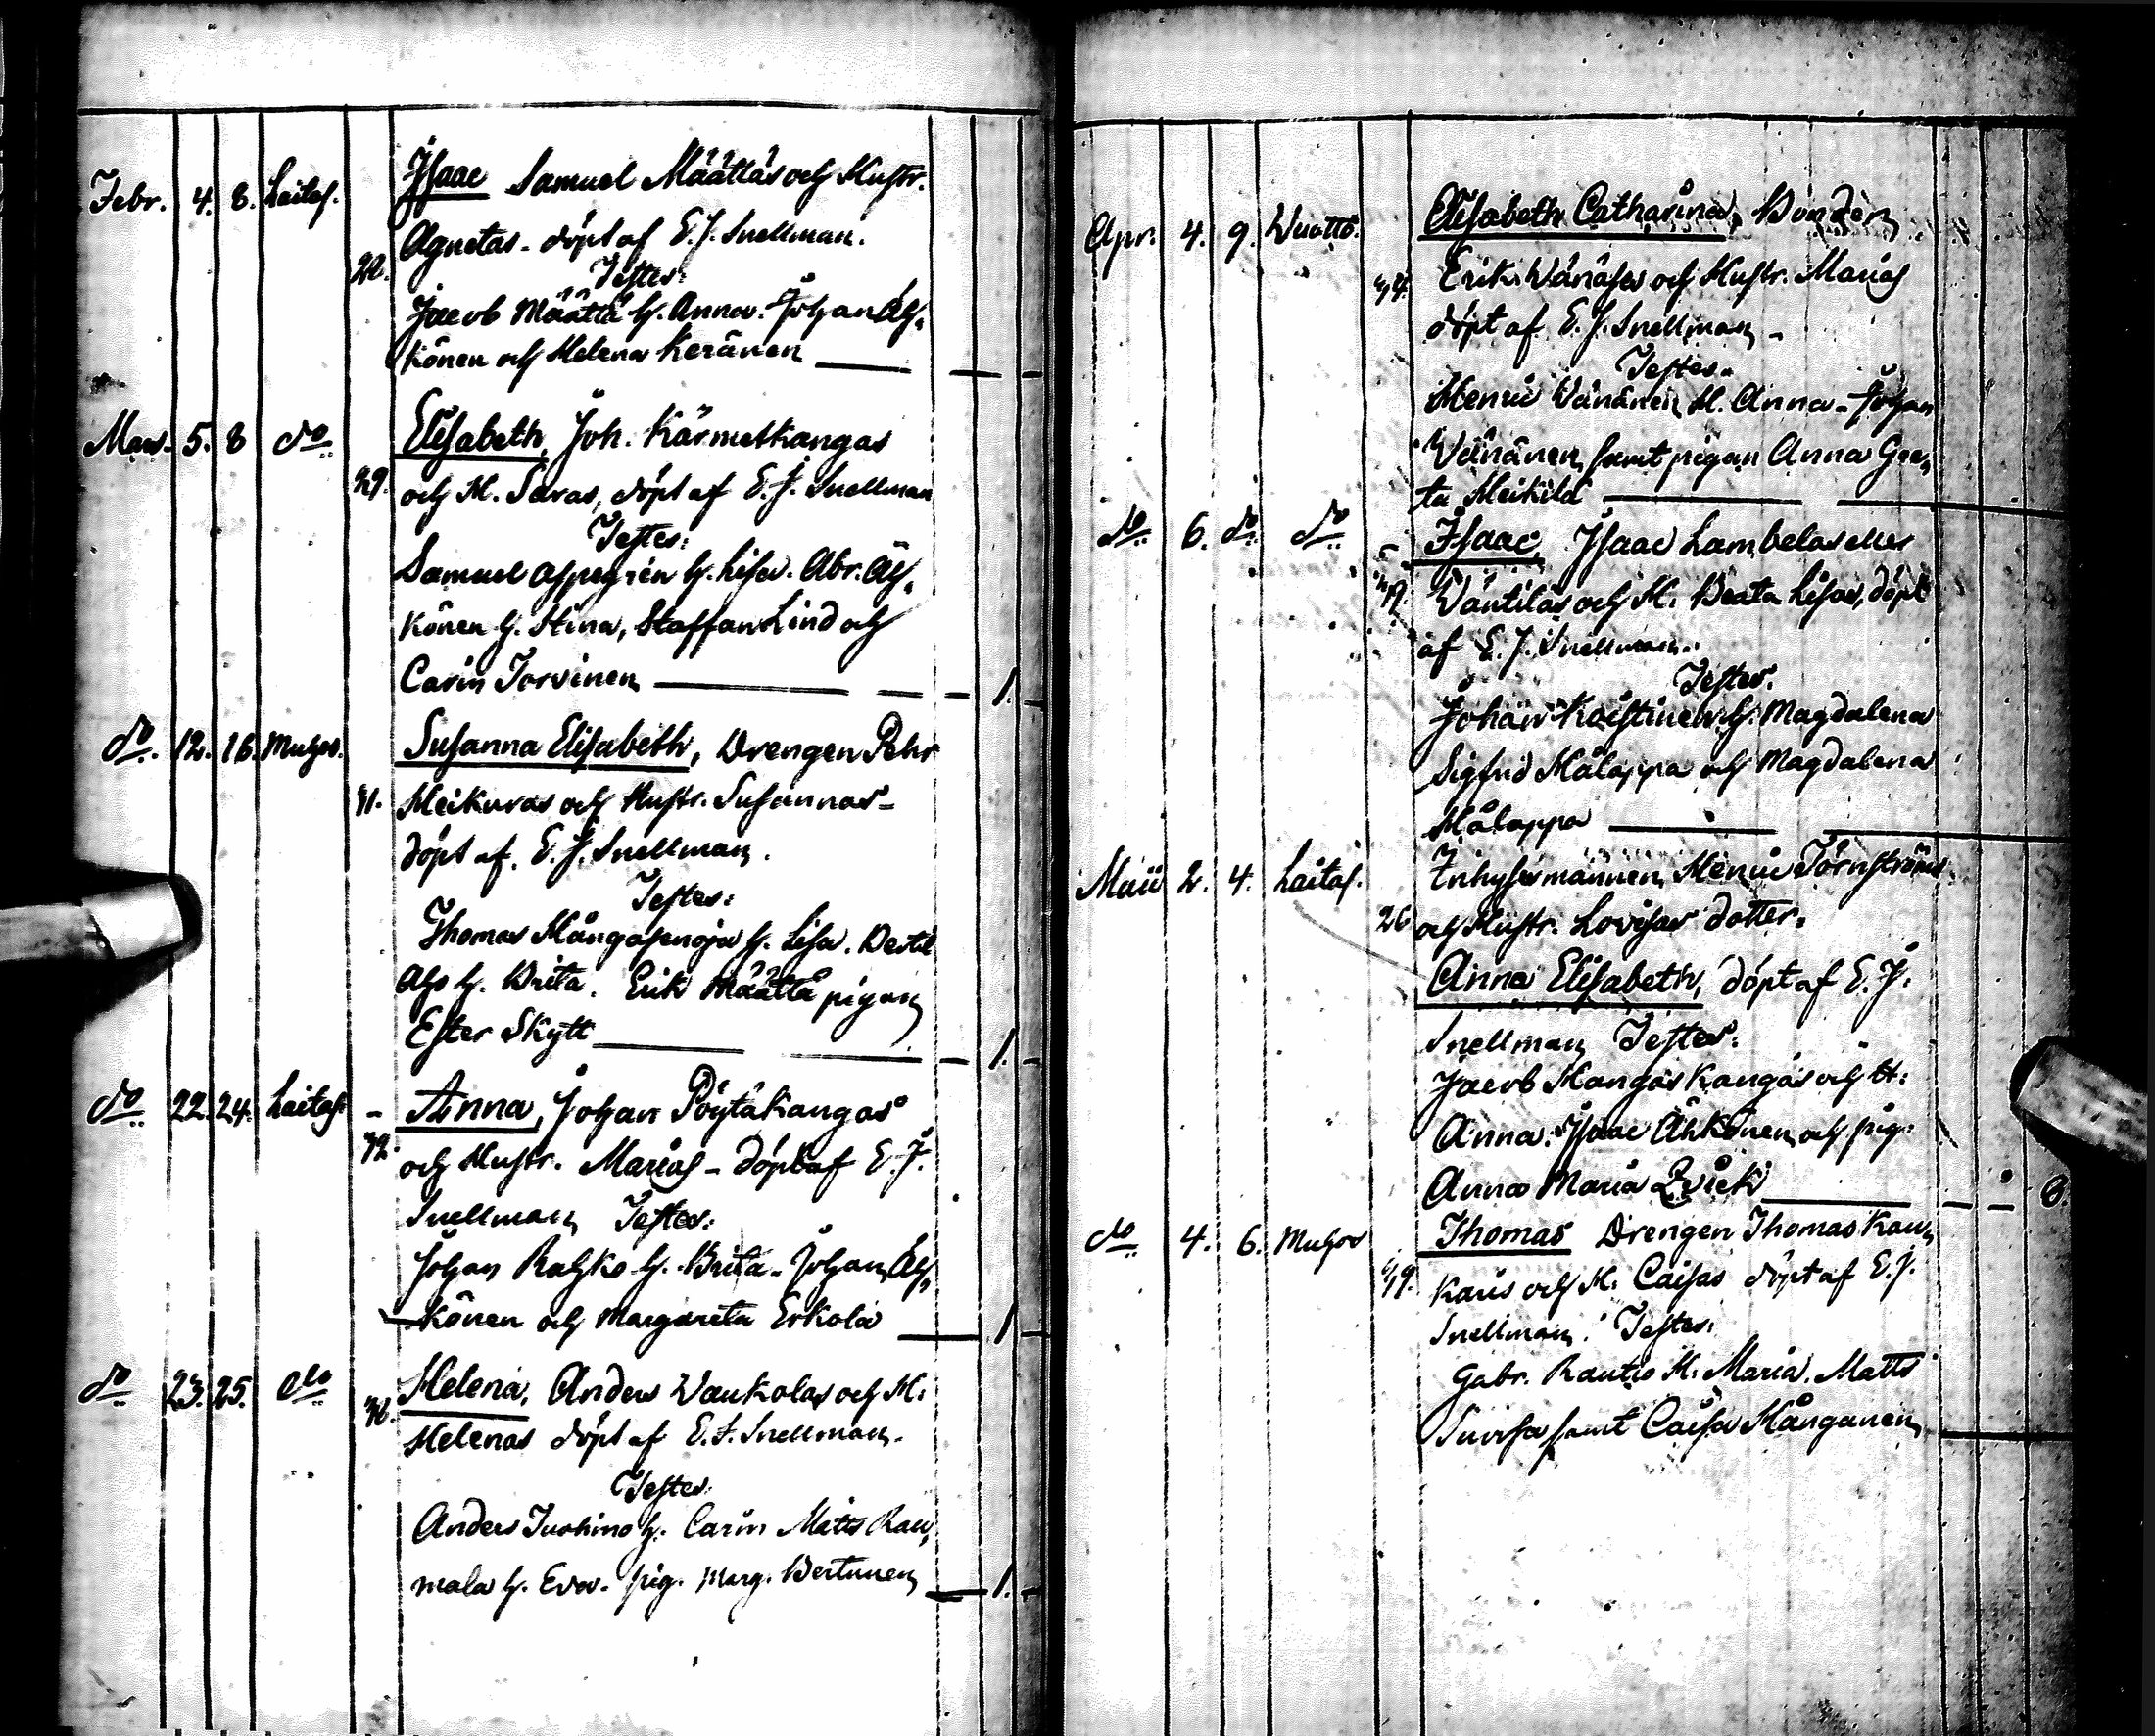 Febr. 4. 8. Laitas. Isaac Samuel Määttäs och Hustr.
Agnetas - döpt af E. J. Snellman.
Testes:
Jacob Määttä h. Anna. Johan Åh,
könen och Helena Keränen
Mars. 5. 8 do Elisabeth, Joh. Kärmetkangas
29. och H. Saras, döpt af E. J. Snellman
Testes:
Samuel Aspegrén h. Lisa. Abr. Åh,
könen h. Stina, Staffan Lind och
Carin Torvinen 1.
do. 12. 16. Muhos. Susanna Elisabeth, Drengen Pehr
31. Heikuras och Hustr. Susannas -
döpt af. E. J. Snellman.
Testes:
Thomas h. Lisa. Bertil
Aho h. Brita. Erik Määttä pigan
Ester Skytt 1.
do 22 24. Laitas Anna, Johan Pöytäkangas
32. och Hustr. Marias - döpt af E. J.
Snellman Testes:
Johan Rahko h. Brita - Johan Åh,
könen och Margareta Erkola 1
do 23. 25. do Helena, Anders Vaukolas och H.
Helenas döpt af E. J. Snellman.
Testes:
Anders h. Carin Matts Rau,
mala h. Eva. pig. Marg. Bertunen 1.
Apr. 4. 9. Wuotto. Elisabeth Catharina, Bonden
34. Erik Wänäses och Hustr. Marias
döpt af E. J. Snellman -
Testes.
Henric Wänänen H. Anna - Johan
Wänänen samt pigan Anna Gre,
ta Heikilä
do 6. do do Isaac Isaac Lambelas eller
Wäntiläs och H. Beata Lisas, döpt
af E. J. Snellman.
Testes.
Johan h. Magdalena
Sigfrid Hålappa och Magdalena
Hålappa
Maii 2. 4. Laitas. Inhyses mannen Henric Törnströms
26 och Hustr. Lovisas dotter.
Anna Elisabeth, döpt af E. J.
Snellman Testes:
Jacob Hangaskangas och H:
Anna. Isaac Åhkönen och pig:
Anna Maria Qvick 8.
do 4. 6. Muhos Thomas Drengen Thomas Kau,
karis och H. Caisas döpt af E. J.
Snellman. Testes:
Gabr. Rautio H. Maria. Matts
samt Caisa Hånganen